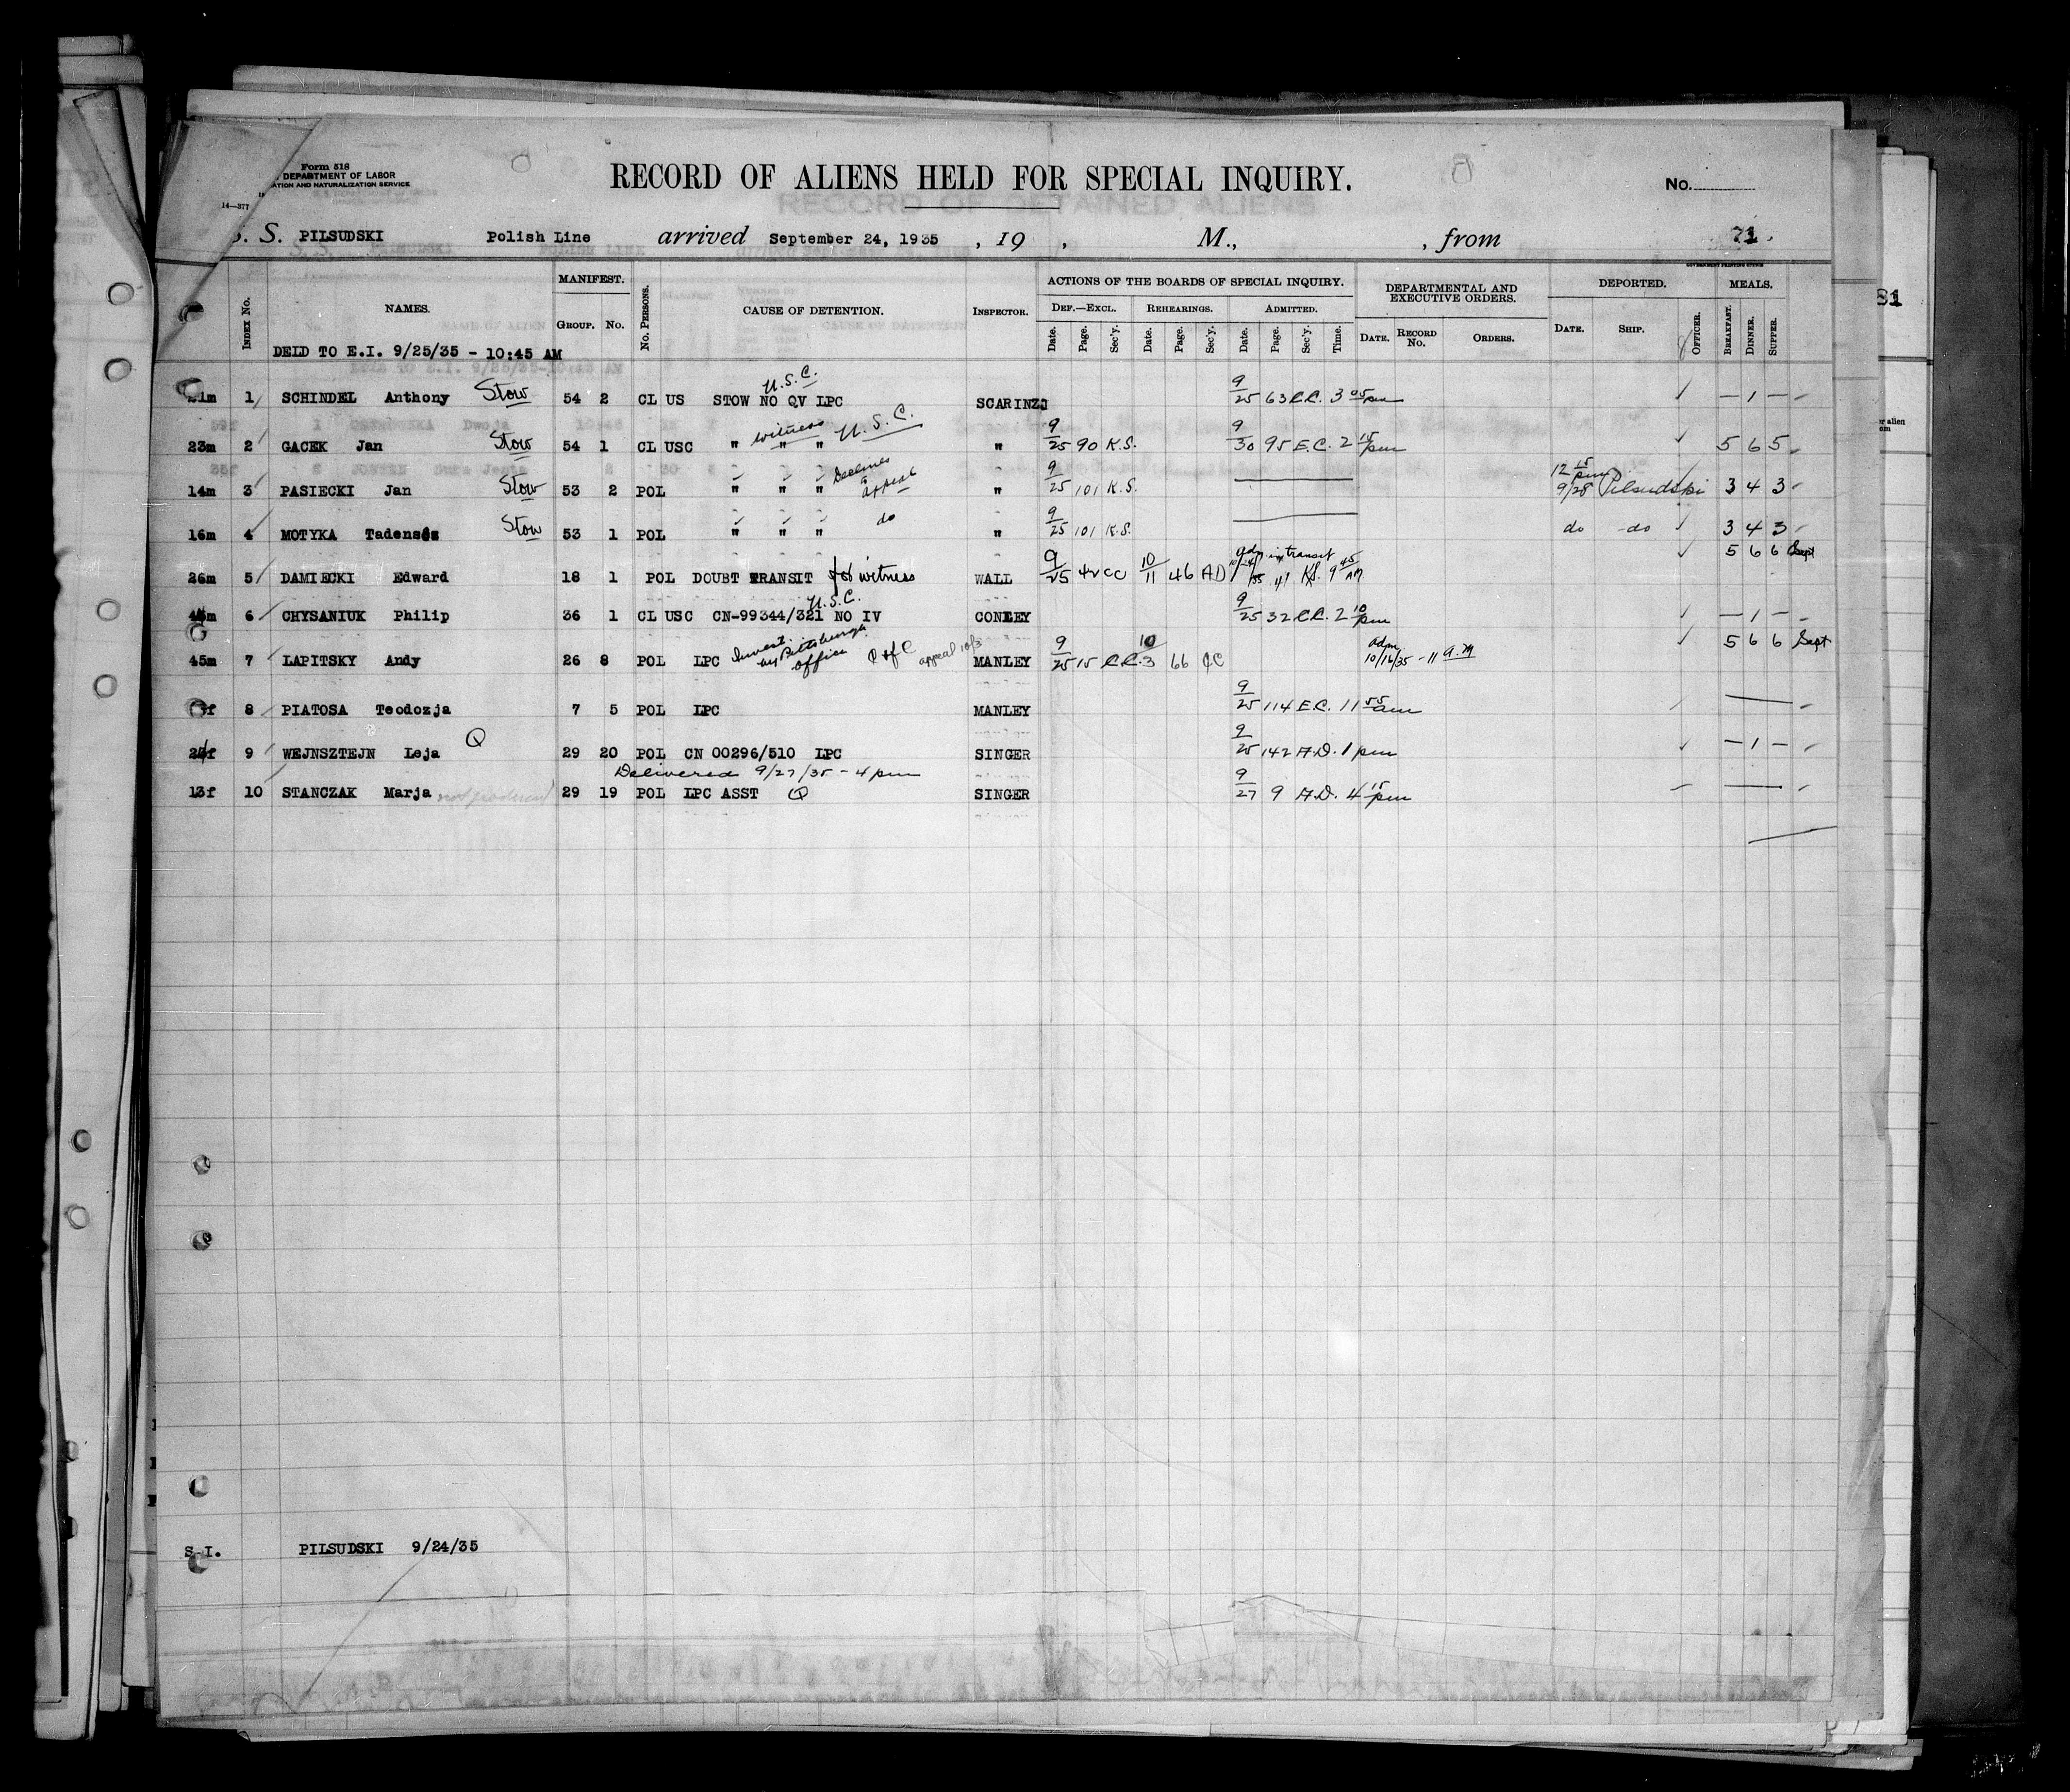 Form 518
DEPARTMENT OF LABOR
ATION AND NATURALIZATION SERVICE
14—377
RECORD OF ALIENS HELD FOR SPECIAL INQUIRY.
No.
S. S. PILSUDSKI Polish Line arrived September 24, 1935 , 19 , M., , from 71.
INDEX No. NAMES. MANIFEST. GROUP. No. No. PERSONS. CAUSE OF DETENTION. INSPECTOR. ACTIONS OF THE BOARDS OF SPECIAL INQUIRY. DEF.—EXCL. Date. Page. Sec'y. REHEARINGS. Date. Page. Sec'y. ADMITTED. Date. Page. Sec'y. Time. DEPARTMENTAL AND EXECUTIVE ORDERS. DATE. RECORD No. ORDERS. DEPORTED. DATE. SHIP. OFFICER. MEALS. BREAKFAST. DINNER. SUPPER.
DELD TO E.I. 9/25/35 - 10:45 AM
1 SCHINDEL Anthony Stow 54 2 CL US STOW NO QV LPC U.S.C. SCARINZI 9/25 63 E.C. 3 05 pm — 1 —
23m 2 GACEK Jan Stow 54 1 CL USC " " " witness U.S.C. " 9/25 90 K.S. 9/30 95 E.C. 2 15 pm 5 6 5
14m 3 PASIECKI Jan Stow 53 2 POL " " " Declines to appeal " 9/25 101 K.S. 12 15 pm 9/28 Pilsudski 3 4 3
16m 4 MOTYKA Tadensés Stow 53 1 POL " " " do " 9/25 101 K.S. do do 3 4 3
26m 5 DAMIECKI Edward 18 1 POL DOUBT TRANSIT for witness WALL 9/25 42 CC 10/11 46 AD adm in transit 41 KS. 9 45 AM 5 6 6 Sept
6 CHYSANIUK Philip 36 1 CL USC CN-99344/321 NO IV U.S.C. CONLEY 9/25 32 E.C. 2 10 pm — 1 —
45m 7 LAPITSKY Andy 26 8 POL LPC Invest. by Pittsburgh office appeal 10/3 MANLEY 9/25 15 E.C. 10/3 66 adm 10/16/35 - 11 a.m 5 6 6 Sept
8 PIATOSA Teodozja 7 5 POL LPC MANLEY 9/25 114 E.C. 11 55 am
9 WEJNSZTEJN Leja Q 29 20 POL CN 00296/510 LPC SINGER 9/25 142 A.D. 1 pm — 1 —
Delivered 9/27/35 - 4 pm
13f 10 STANCZAK Marja 29 19 POL LPC ASST Q SINGER 9/27 9 A.D. 4 15 pm
S.I. PILSUDSKI 9/24/35